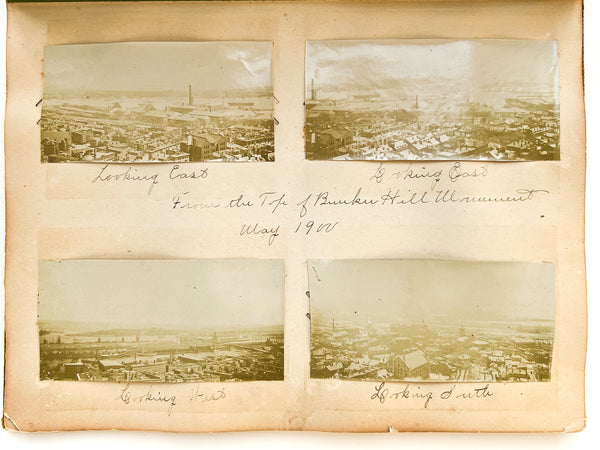 Looking East
Looking East
From the Top of Bunker Hill Monument
May 1900
Looking West
Looking South